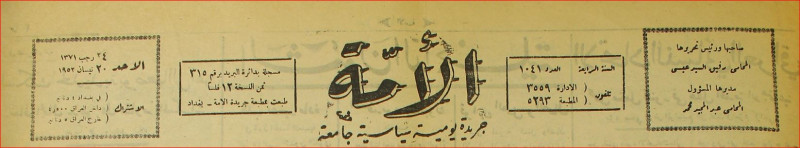 صاحبها ورئيس تحريرها
المحامي رفيق السيد عيسى
مديرها المسؤول
المحامي عبد المجيد محمد
السنة الرابعة العدد ١٠٤١
تلفون الادارة ٣٥٥٩
المطبعة ٥٢٩٣
الأمة
جريدة يومية سياسية جامعة
مسجلة بدائرة البريد برقم ٣١٥
ثمن النسخة ١٢ فلساً
طبعت بمطبعة جريدة الامة - بغداد
الاحد ٢٤ رجب ١٣٧١
٢٠ نيسان ١٩٥٢
الاشتراك
في بغداد
داخل العراق
خارج العراق